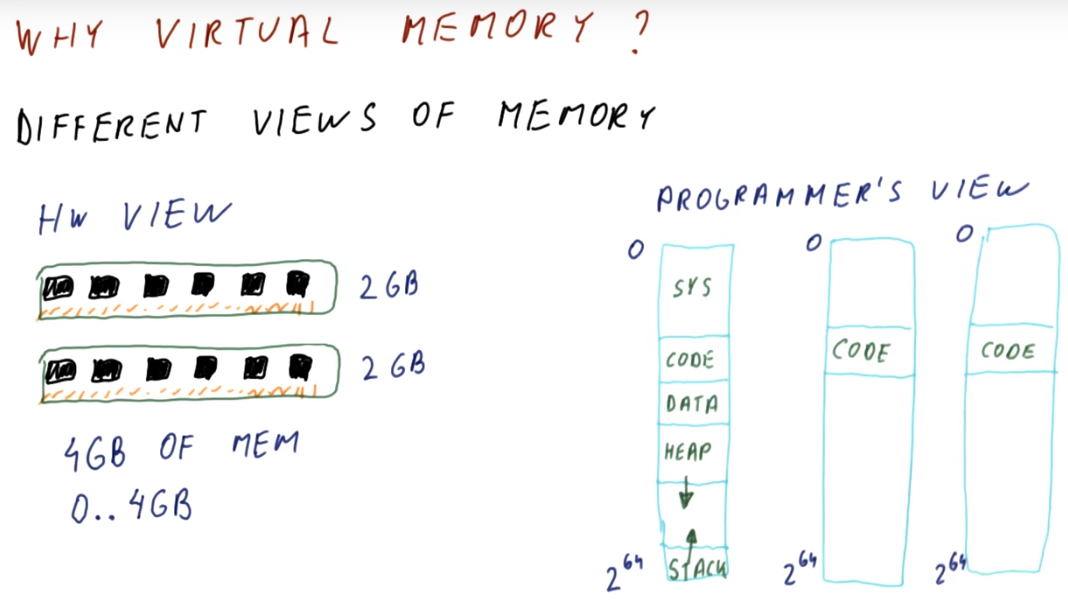 WHY VIRTUAL MEMORY?
DIFFERENT VIEWS OF MEMORY
HW VIEW
2 GB
2 GB
4GB OF MEM
0..4GB
PROGRAMMER'S VIEW
0
SYS
CODE
DATA
HEAP
STACK
2^64
0
CODE
2^64
0
CODE
2^64